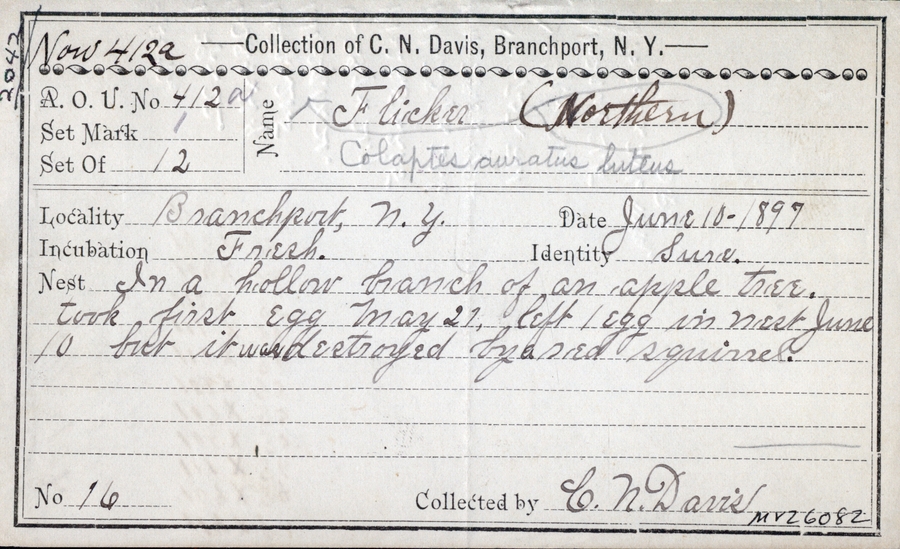 Now 412a Collection of C. N. Davis, Branchport, N. Y.
2042
A. O. U. No 412a Name Flicker (Northern)
Set Mark 1
Set Of 12 Colaptes auratus luteus
Locality Branchport, N. Y. Date June 10-1897
Incubation Fresh. Identity Sure.
Nest In a hollow branch of an apple tree.
took first egg May 21, left 1 egg in nest June
10 but it was destroyed by a red squirrel.
No 16 Collected by C. N. Davis
MVZ6082